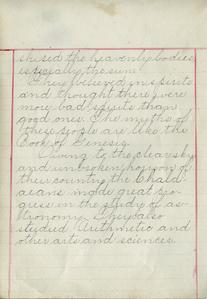 shiped the heavenly bodies
especially the sun.
They believed in spirits
and thought there were
more bad spirits than
good ones. The myths of
these people are like the
Book of Genesis.
Owing to the clear sky
and unbroken horizon of
their country the Chald
aeans made great pro-
gress in the study of as-
tronomy. They also
studied Arithmetic and
other arts and sciences.